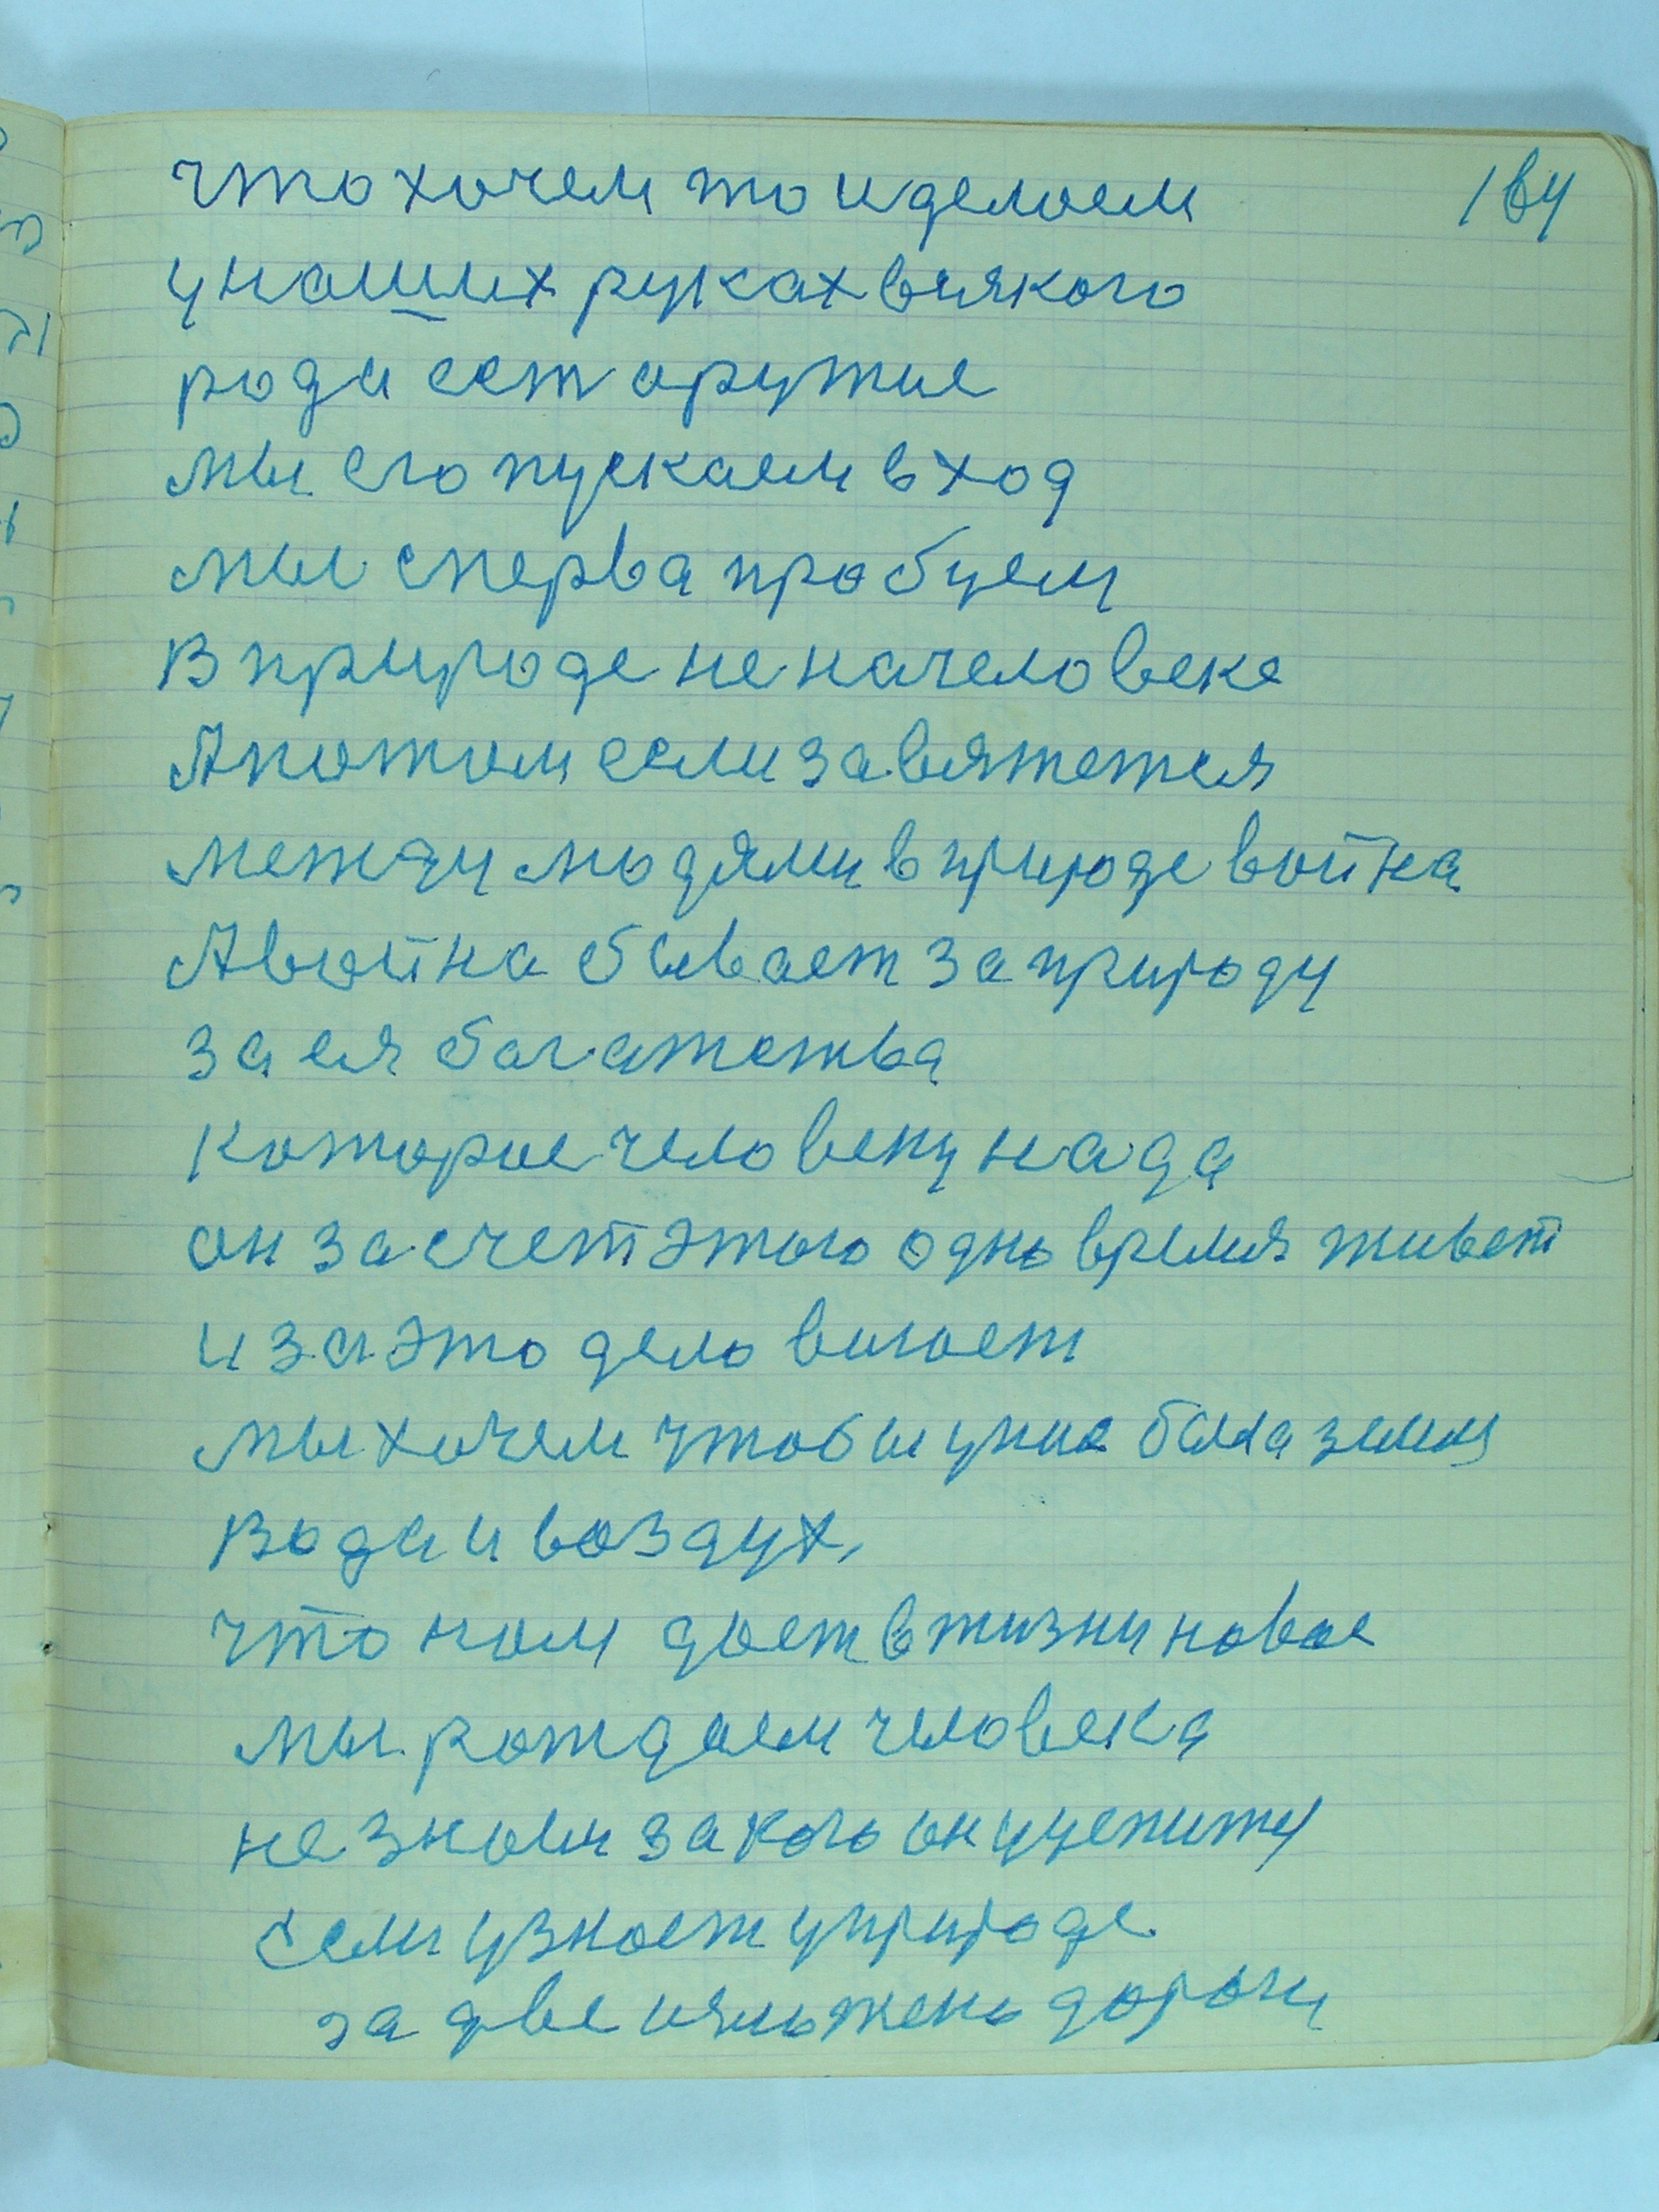 164
что хочем то и делоем
у наших руках всякого
рода ест оружие
мы его пускаем в ход
мы сперва пробуем
В природе не на человеке
А потом если завяжется
между людями в природе война
А война бывает за природу
за ея богатства
которое человеку нада
он за счет этого одно время живет
и за это дело воюет
мы хочем чтобы у нас была земля
вода и воздух,
что нам дает в жизни новое
мы рождаем человека
не знаем за кого он
если узнает у природе
за две дороги